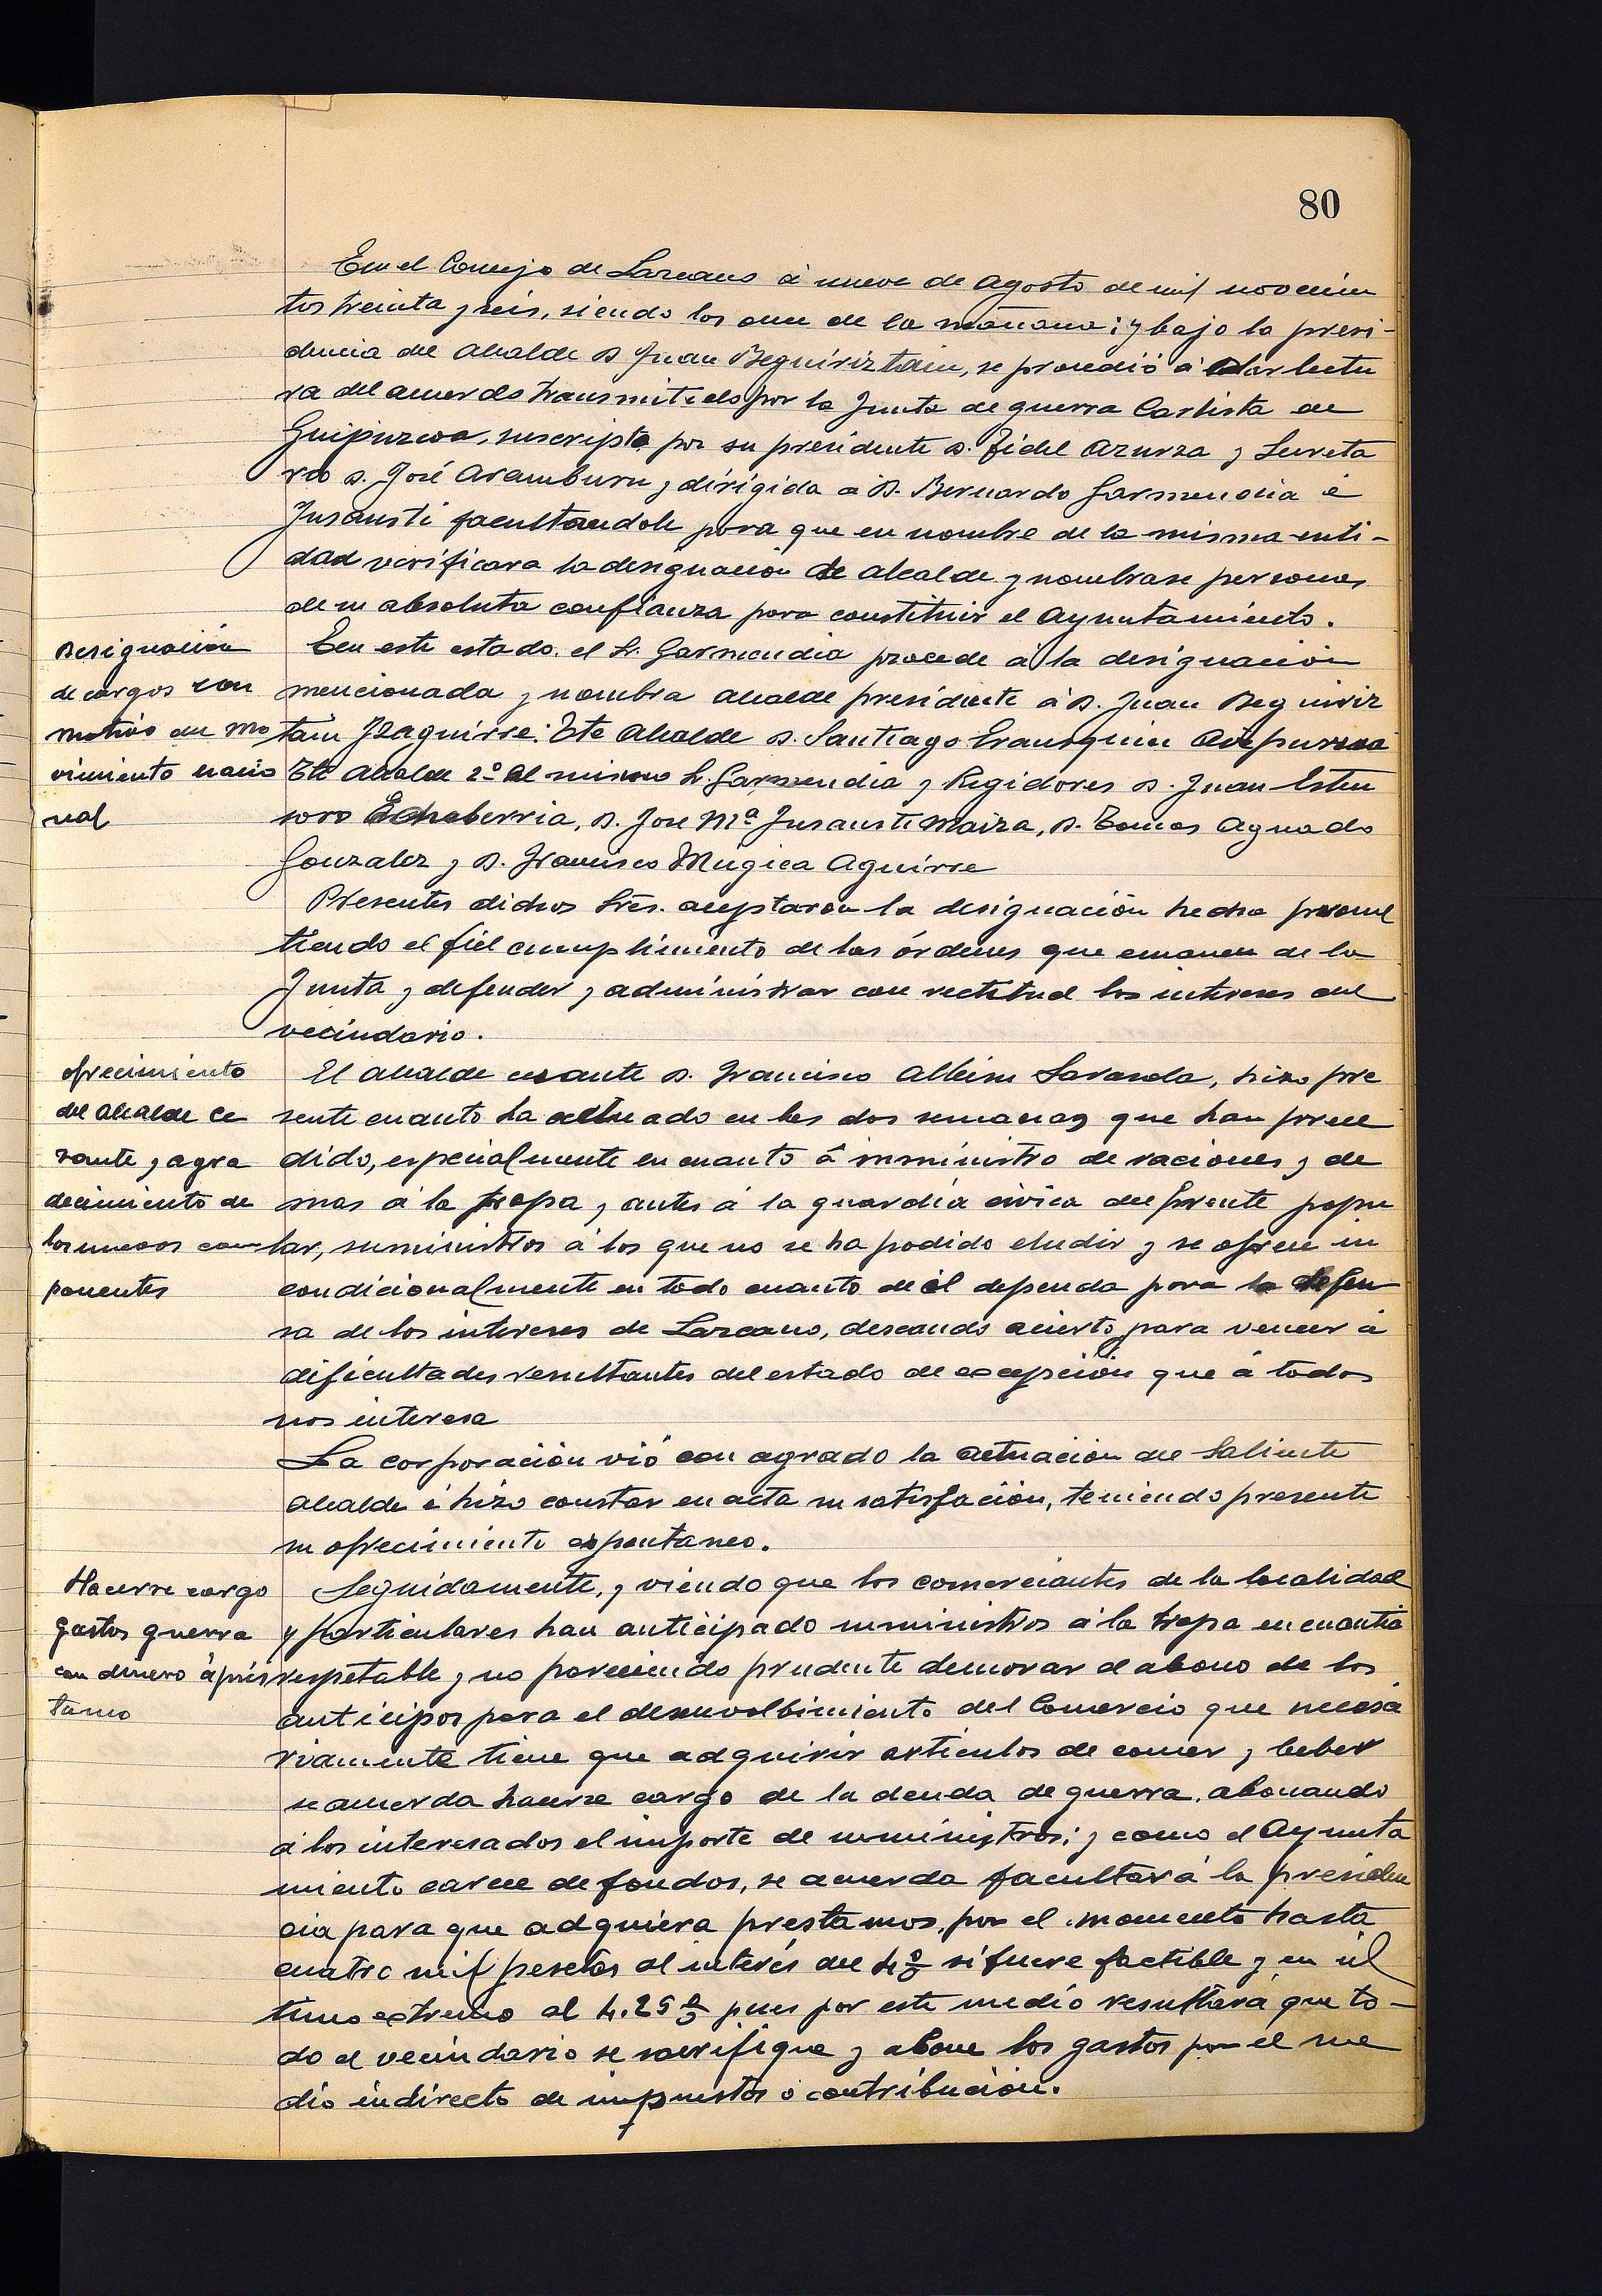 80
En el Concejo de Lazcano á nueve de Agosto de mil novecien
tos treinta y seis, siendo las once de la mañana; y bajo la presi-
dencia del Alcalde D Juan Beguiriztain, se procedió á dar lectu
ra del acuerdo transmitido por la Junta de guerra Carlista de
Guipuzcoa, suscripta por su presidente D. Fidel Azurza y Secreta
rio D. José Aramburu y dirigida a D. Bernardo Garmendia é
Insausti facultandole para que en nombre de la misma enti-
dad verificara la designación de Alcalde y nombrase personas
de su absoluta confianza para constituir el Ayuntamiento.
Designación
de cargos con
motivo del Mo
vimiento nacio
nal
En este estado, el Sr. Garmendia procede á la designación
mencionada y nombra Alcalde presidente á D. Juan Beguiriz
tain Izaguirre: Tte Alcalde D. Santiago Erausquin
Tte Alcalde 2º al mismo Sr. Garmendia y Regidores D. Juan Esten
soro Echeberria, D. Jose Mª Insausti Maiza, D. Tomas Aguado
Gonzalez y D. Francisco Mugica Aguirre
Presentes dichos Sres. aceptaron la designación hecha prome
tiendo el fiel cumplimiento de las órdenes que emanen de la
Junta y defender y administrar con rectitud los intereses del
vecindario.
ofrecimiento
del Alcalde ce
sante y agra
decimiento de
los nuevos com
ponentes
El Alcalde cesante D. Francisco Albisu, hizo pre
sente cuanto ha actuado en las dos semanas que han prece
dido, especialmente en cuanto á suministro de raciones y de
mas á la tropa y antes á la guardia civica del frente popu
lar, suministros á los que no se ha podido eludir y se ofrece in
condicionalmente en todo cuanto de él dependa para la defen
sa de los intereses de Lazcano, deseando acierto para vencer á
dificultades resultantes del estado de excepción que á todos
nos interesa
La corporación vió con agrado la actuación del Saliente
Alcalde é hizo constar en acta su satisfación, teniendo presente
su ofrecimiento espontaneo.
Hacerse cargo
gastos guerra
con dinero á prés
tamo
Seguidamente, y viendo que los comerciantes de la localidad
y particulares han anticipado suministros á la tropa en cuantia
respetable y no pareciendo prudente demorar el abono de los
anticipos para el desenvolbimiento del Comercio que necesa
riamente tiene que adquirir articulos de comer y beber
se acuerda hacerse cargo de la deuda de guerra, abonando
á los interesados el importe de suministros; y como el Ayunta
miento carece de fondos, se acuerda facultar á la presiden
cia para que adquiera prestamos, por el momento hasta
cuatro mil pesetas al interés del 4 % si fuere factible y en úl
timo extremo al 4.25 % pues por este medio resultará que to-
do el vecindario se sacrifique y abone los gastos por el me
dio indirecto de impuestos o contribución.